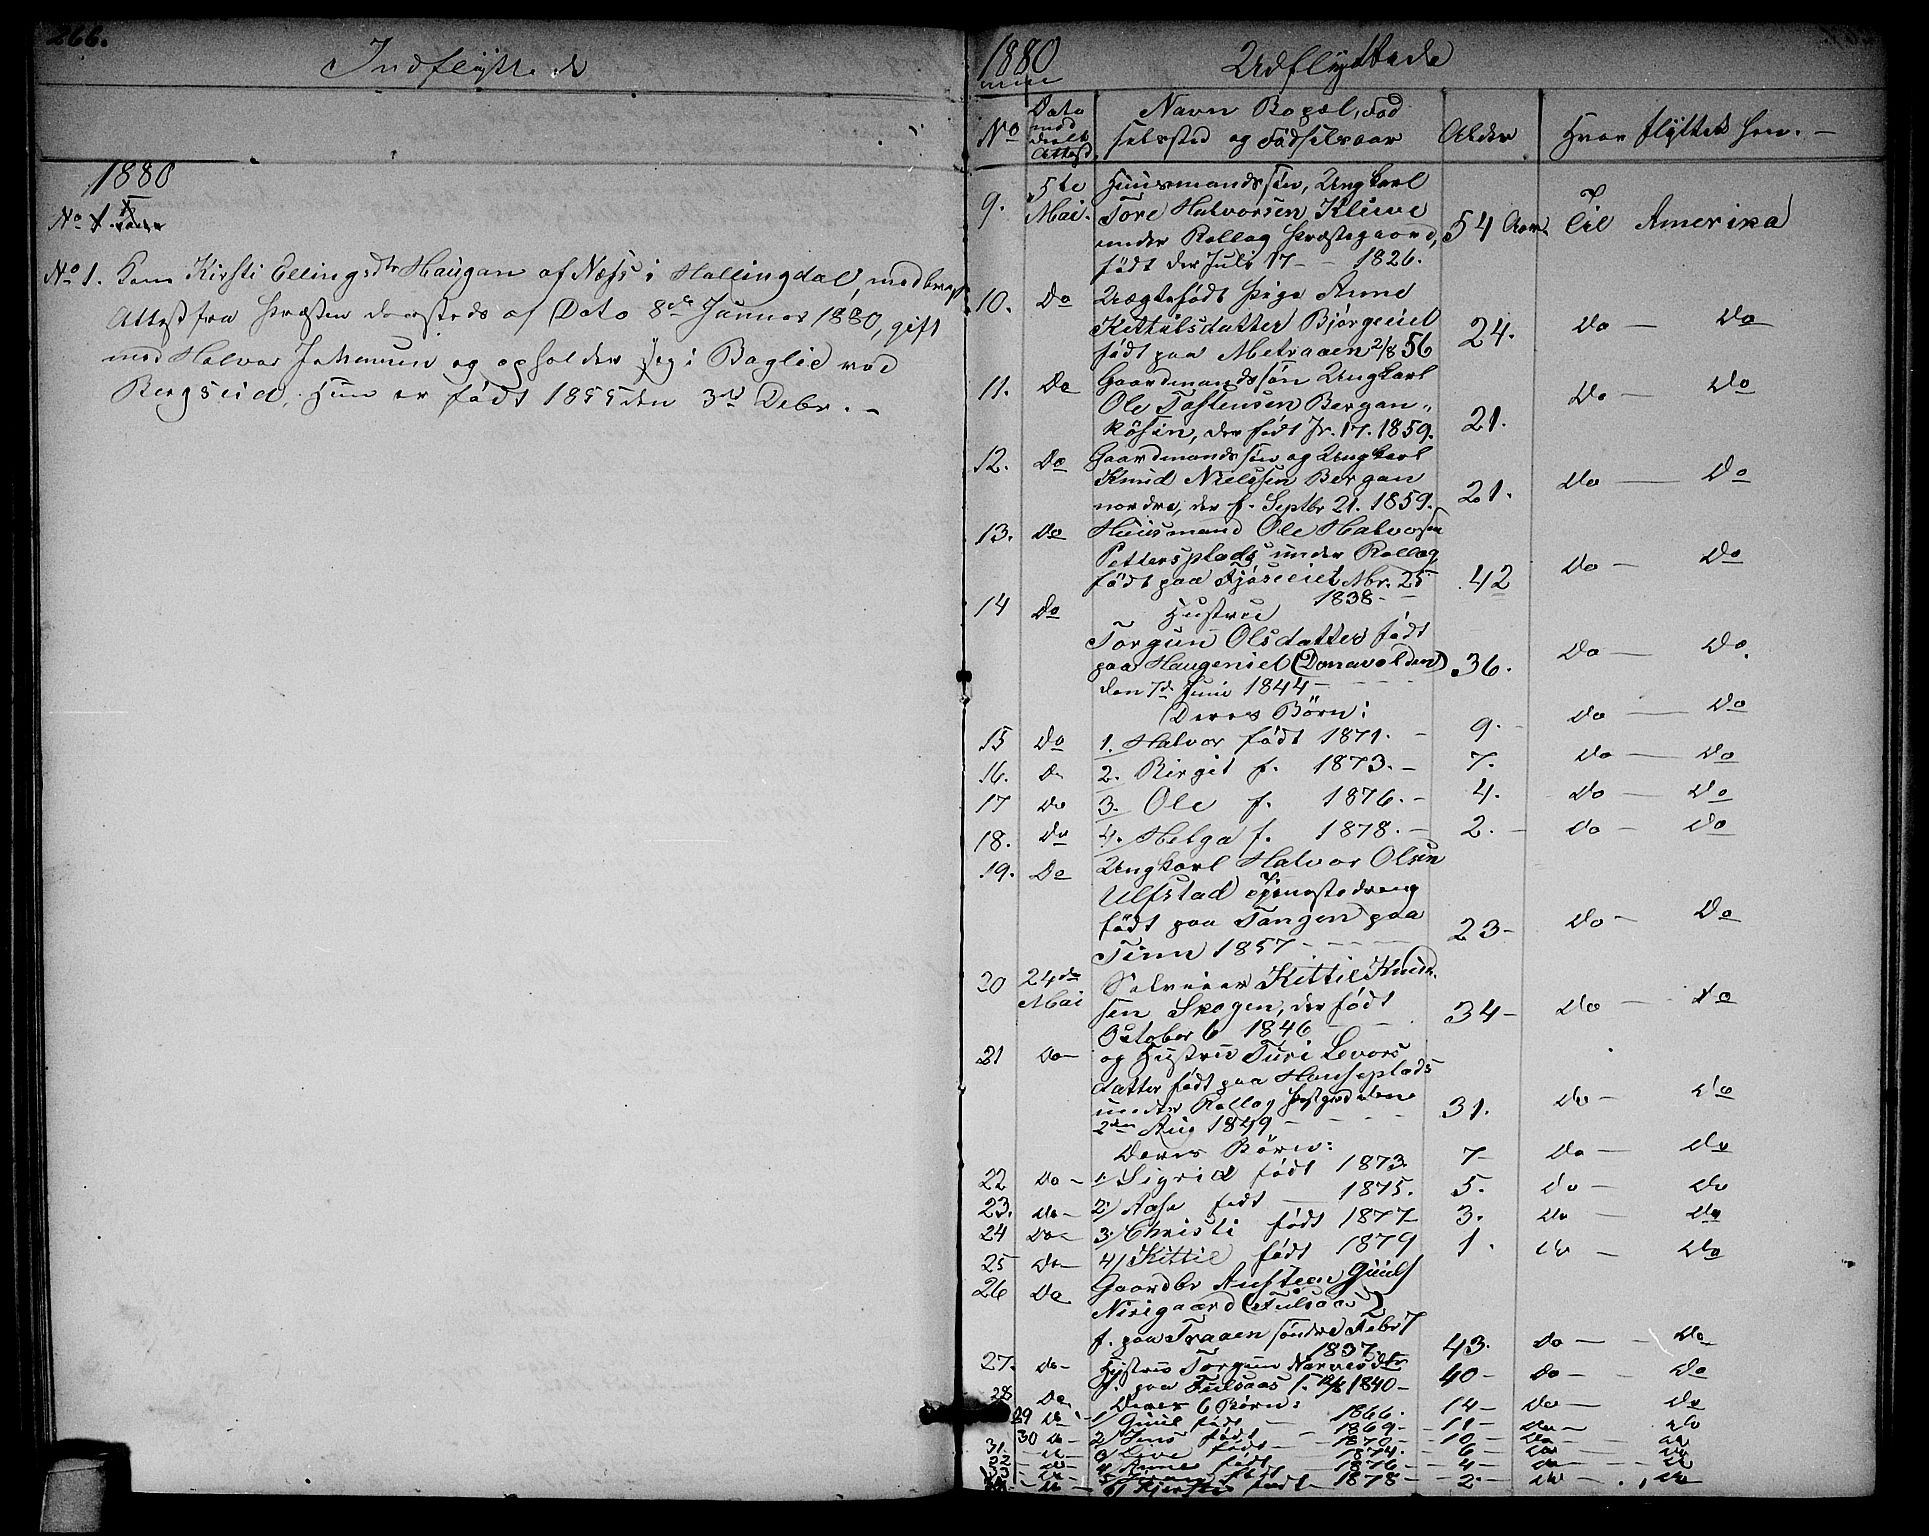 266.
Indflyttede
1880
No 1.
No 1. Kom Kirsti Ellingsdtr Haugan af Næss i Hallingdal, medbragt
Attest fra Præsten dersteds af Dato 8de Januar 1880, gift
med Halvor Johannesen og opholder seg i Baglid ved
Bergseid. Hun er født 1855 den 3die Debr. -
1880
Udflyttede
No
Dato
med
deelt
Attest
Navn Bopæl, Fød
selssted og Fødselsaar
Alder
Hvor flyttet hen. -
9. 5te Mai. Huusmandssøn, Ungkarl
Tore Halvorsen Kluve
under Rollag Præstegaard, 54 Aar. Til Amerika
født der Juli 17 - 1826.
10. Do Uægtefødt Pige Anne
Kittilsdatter Bjørgeiiet 24. Do - Do
født paa Metraaen 2/8 56
11. Do Gaardmandssøn Ungkarl
Ole Tostensen Bergan- 21. Do - Do
køsin, der født Jr. 17. 1859.
12. Do Gaardmandssøn og Ungkarl
Knud Nielssen Bergan 21. Do - Do
nordre, der f. Septbr 21. 1859.
13. Do Huusmand Ole Halvorsen
Pettersplads, under Rollag
født paa Fjøseiet Nbr. 25 42 Do - Do
1838 -
14 Do Hustru
Torgun Olsdatter født
paa Haugeniet (Donavolden) 36. Do - Do.
den 7de Juni 1844 -
Deres Børn:
15 Do 1. Halvor født 1871. - 9. - Do - Do
16. Do 2. Birgit f. 1873. - 7. Do - Do
17 Do 3. Ole f. 1876. - 4. Do - Do
18. Do 4. Helga f. 1878. - 2. - Do - Do
19. Do Ungkarl Halvor Olsen
Ulfstad Tjenestedreng
født paa Tangen paa 23 - Do - Do
Tinn 1857 -
20 24de Mai Selveier Kittil Knud
sen Skogen, der født 34 - Do - Do
October 6 1846 -
21 Do - og Hustru Turi Levors
datter født paa Hanseplads
under Rollag Prestgard den 31. Do - Do
2den Aug 1849 -
Deres Børn:
22 Do - 1. Sigrid født 1873. 7 - Do - Do
23. Do - 2/ Aase født - 1875. 5. Do - Do
24 Do - 3/ Christi født 1877 3. Do - Do
25 Do - 4/ Kittil født 1879 1. Do - Do
26 Do Gaardbr Austeen Guuls
Nirigaard (Fulsaas)
f. paa Traaen søndre Febr 7
1837. 43. Do - Do
27. Do - Hustru Torgun Narvesdtr
f. paa Fulsaas f. 12/8 1840 - 40 - Do - Do
28 Do Deres 6 Børn:
29 Do 1/ Guul født 1866. 14 - Do - Do
30 Do - 2/ Jens født - 1869 - 11 - Do - Do
31. - Do - 3/ Live født - 1870 - 10 - Do - Do
32 - Do - 4 Anne født 1874. - 6 - Do - Do
33 - Do - 5 født 1876 - 4 - Do - Do
Do - 6/ Kjersti født 1878 - 2. - Do - Do